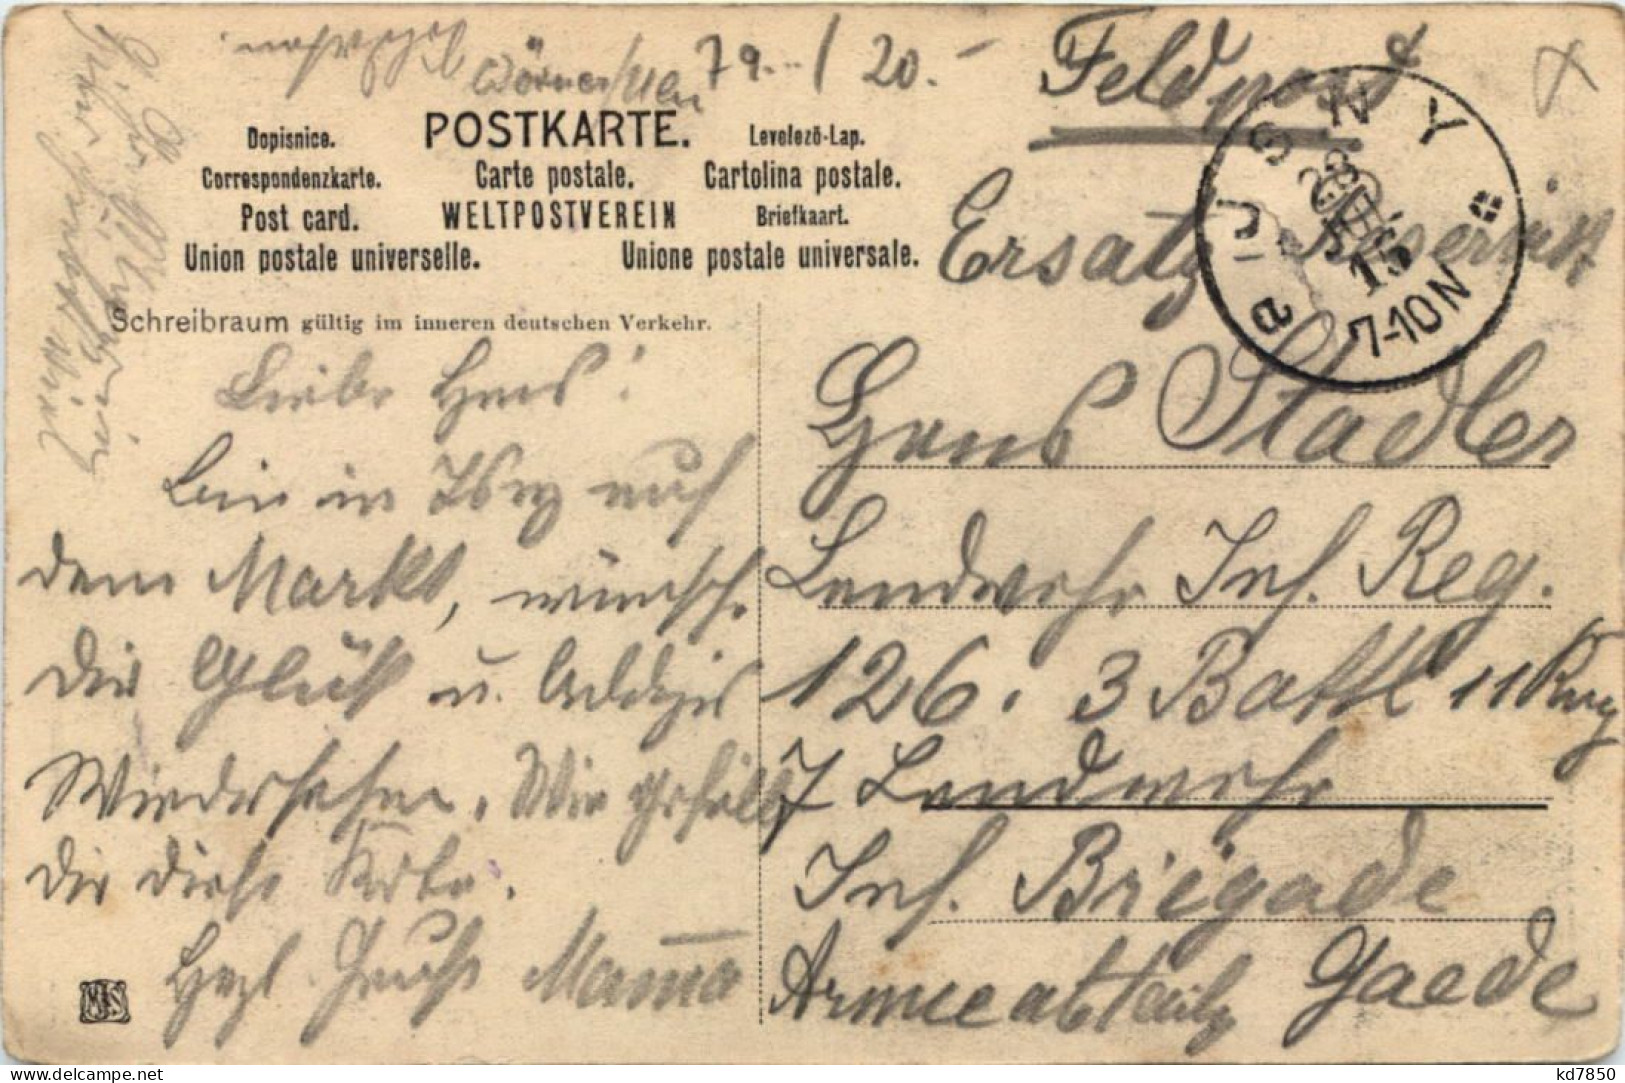 Wörner/Ulm 79.../20.-
Feldpost
Dopisnice. POSTKARTE. Levelező-Lap.
Correspondenzkarte. Carte postale. Cartolina postale.
Post card. WELTPOSTVEREIN Briefkaart.
Union postale universelle. Unione postale universale.
BUSNY
15
7-10N
a
Ersatz Reservist
Schreibraum gültig im inneren deutschen Verkehr.
Liebe Hans!
Bin in Isny auf
dem Markt, wünsche
Dir Glück u. baldiges
Wiedersehen. Wie gefällt
dir diese Karte.
Herzl. Grüße Mama
MJS
Hans Stadler
Landwehr Inf. Reg.
126. 3 Battl 11 Komp
7 Landwehr
Inf. Brigade
Armeeabteilg Gaede
kartenplanet.ch
kd7850